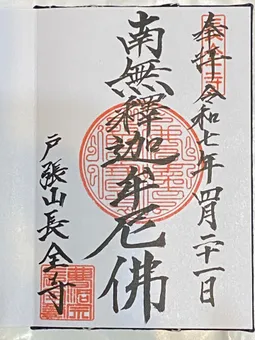 奉拝 令和七年 四月二十一日
南無釋迦牟尼佛
戸張山長全寺